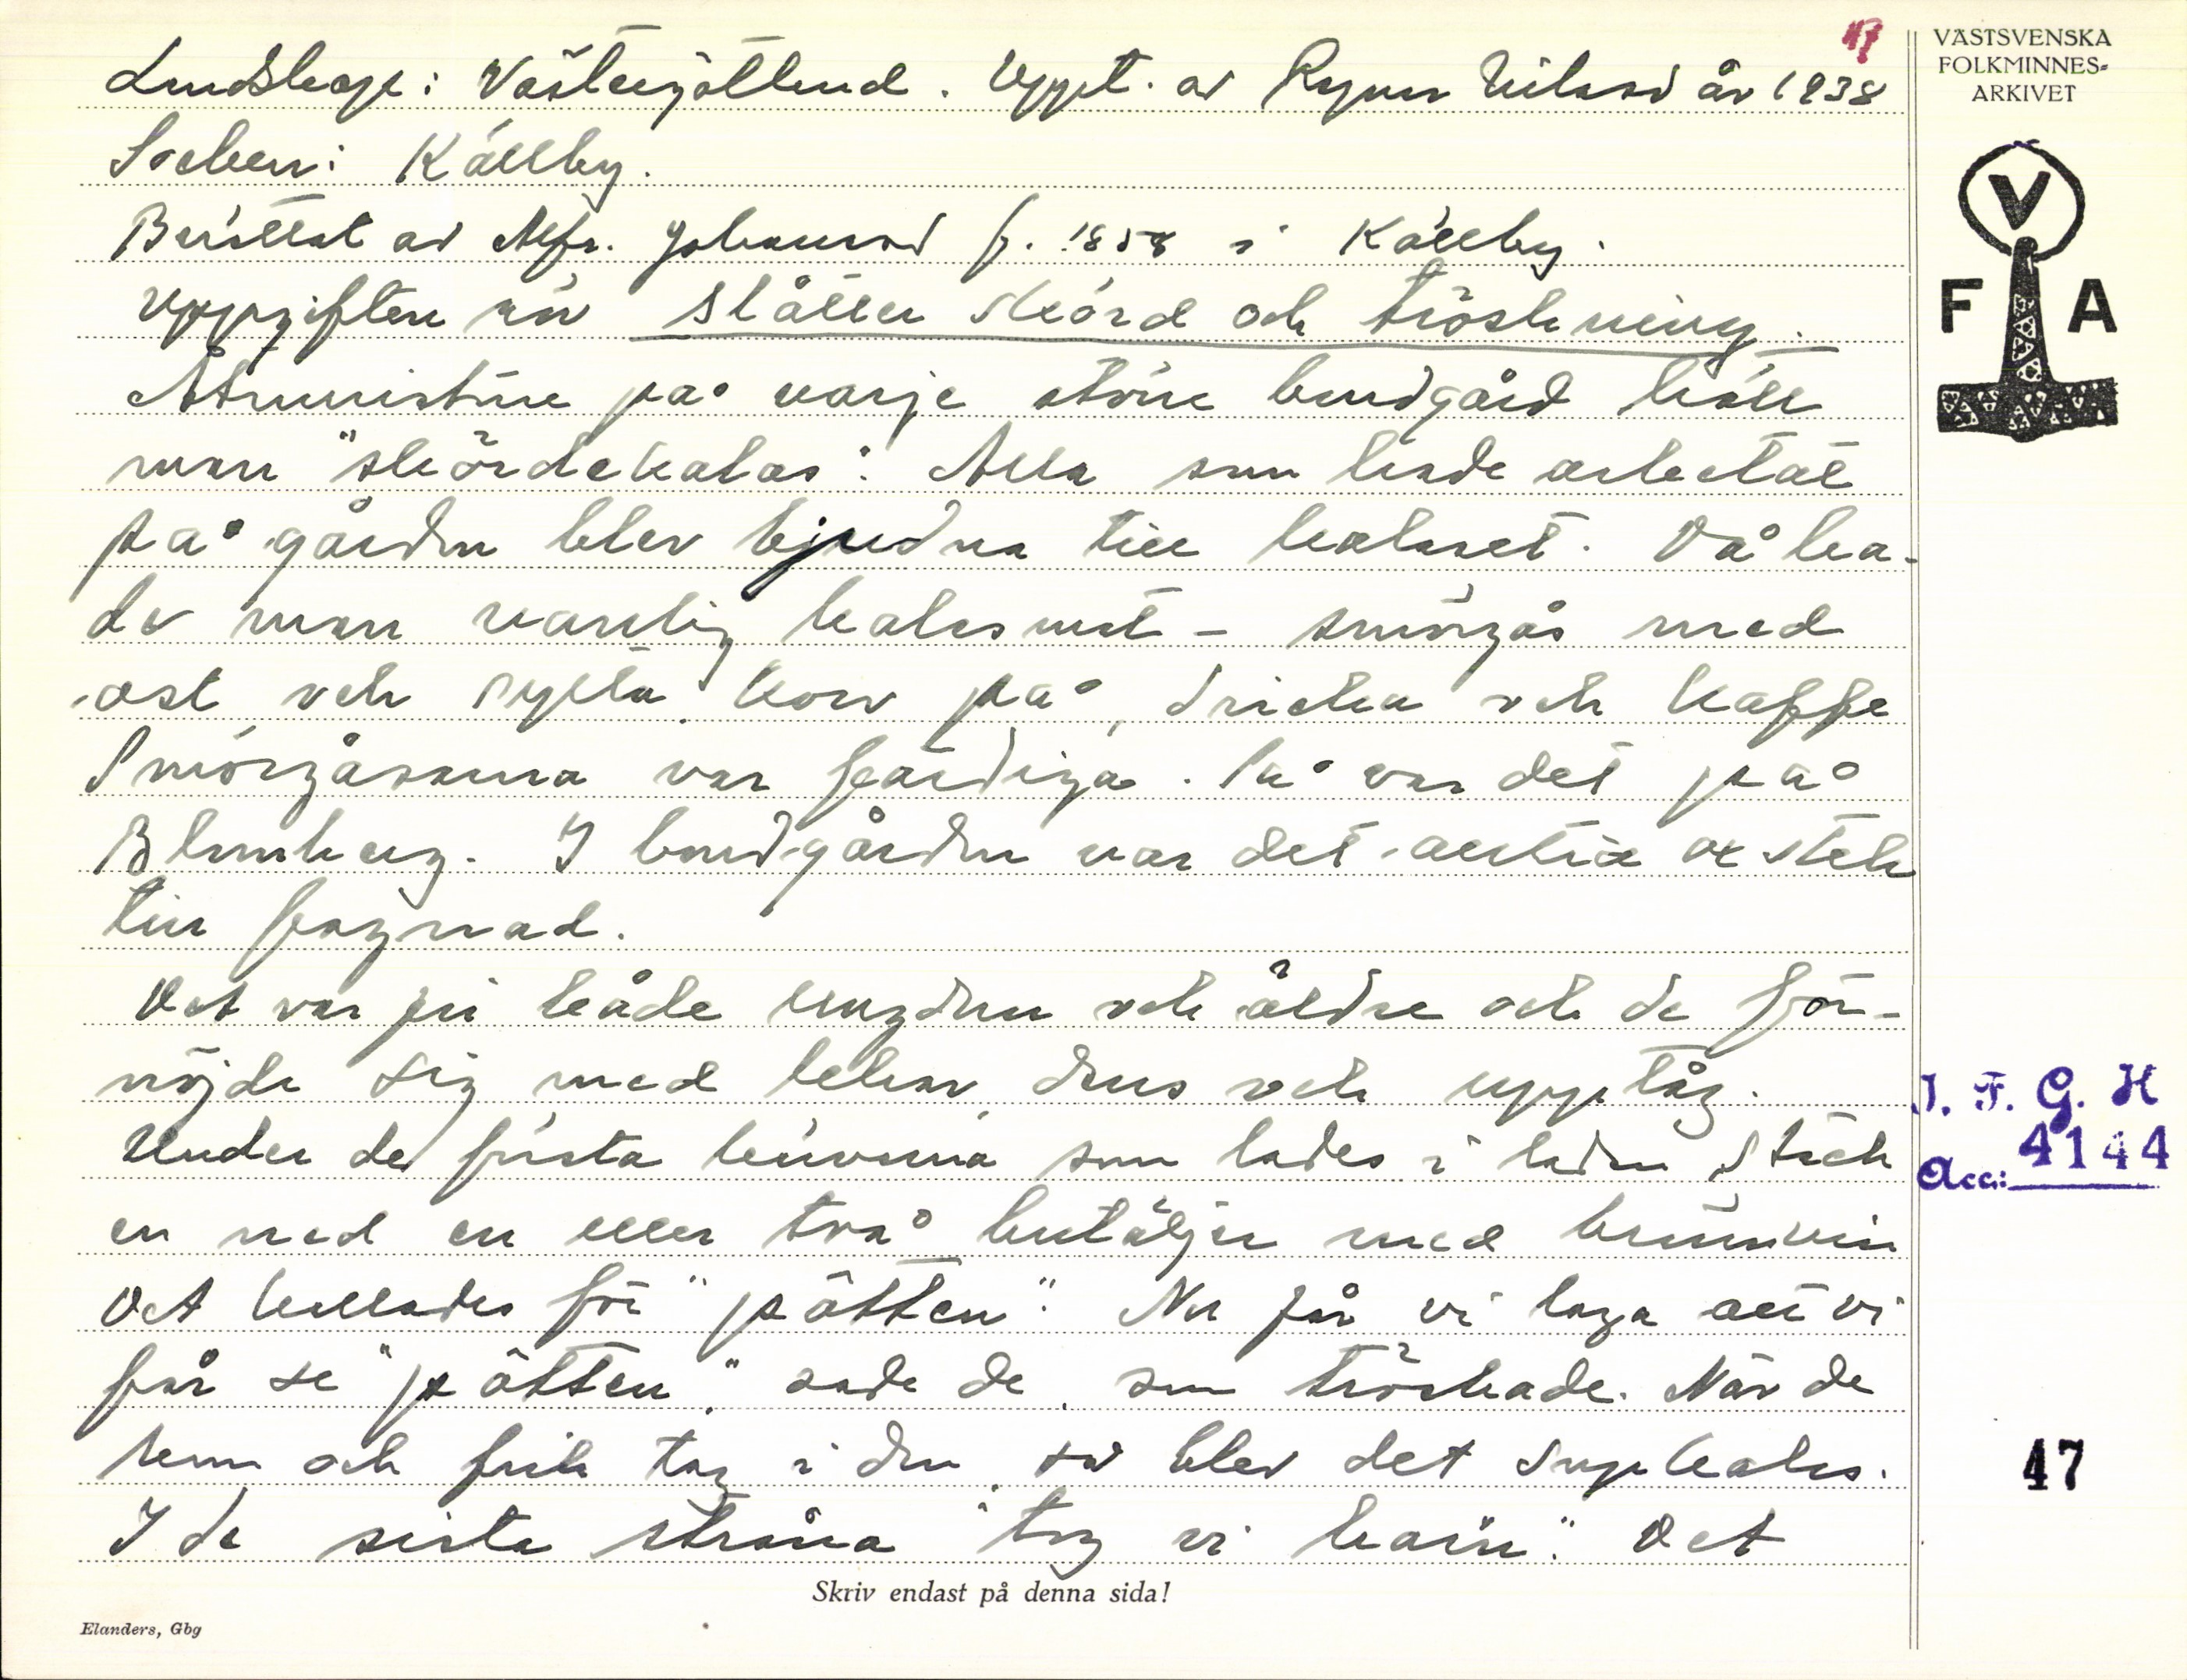 Landskap: Västergötland. Uppt. av Ragnar Nilsson år 1938
Socken: Källby.
Berättat av Alfr. Johansson f. 1858 i Källby.
Uppgiften rör Slåtter skörd och tröskning.
Åtminstone på varje större bondgård höll
man "skördekalas". Alla som hade arbetat
på gården blev bjudna till kalaset. Då ha-
de man vanlig kalasmat - smörgås med
ost och sylta korv på, dricka och kaffe
Smörgåsarna var färdiga. Så var det på
Blomberg. I bondgården var det alltid ost och
till fägnad.
Det var ju både ungdom och äldre och de för-
nöjde sig med lekar, dans och upptåg.
Under de första kärvarna som lades i ladan stack
en ned en eller två buteljer med brännvin
Det kallades för "pätten". Nu får vi laga att vi
får se "pätten", sade de, som tröskade. När de
kom och fick tag i den, så blev det supkalas.
I de sista stråna "tog vi harn". Det
Skriv endast på denna sida!
Elanders, Gbg
47
VÄSTSVENSKA
FOLKMINNES-
ARKIVET
V
F A
I. F. G. H
Acc: 4144
47